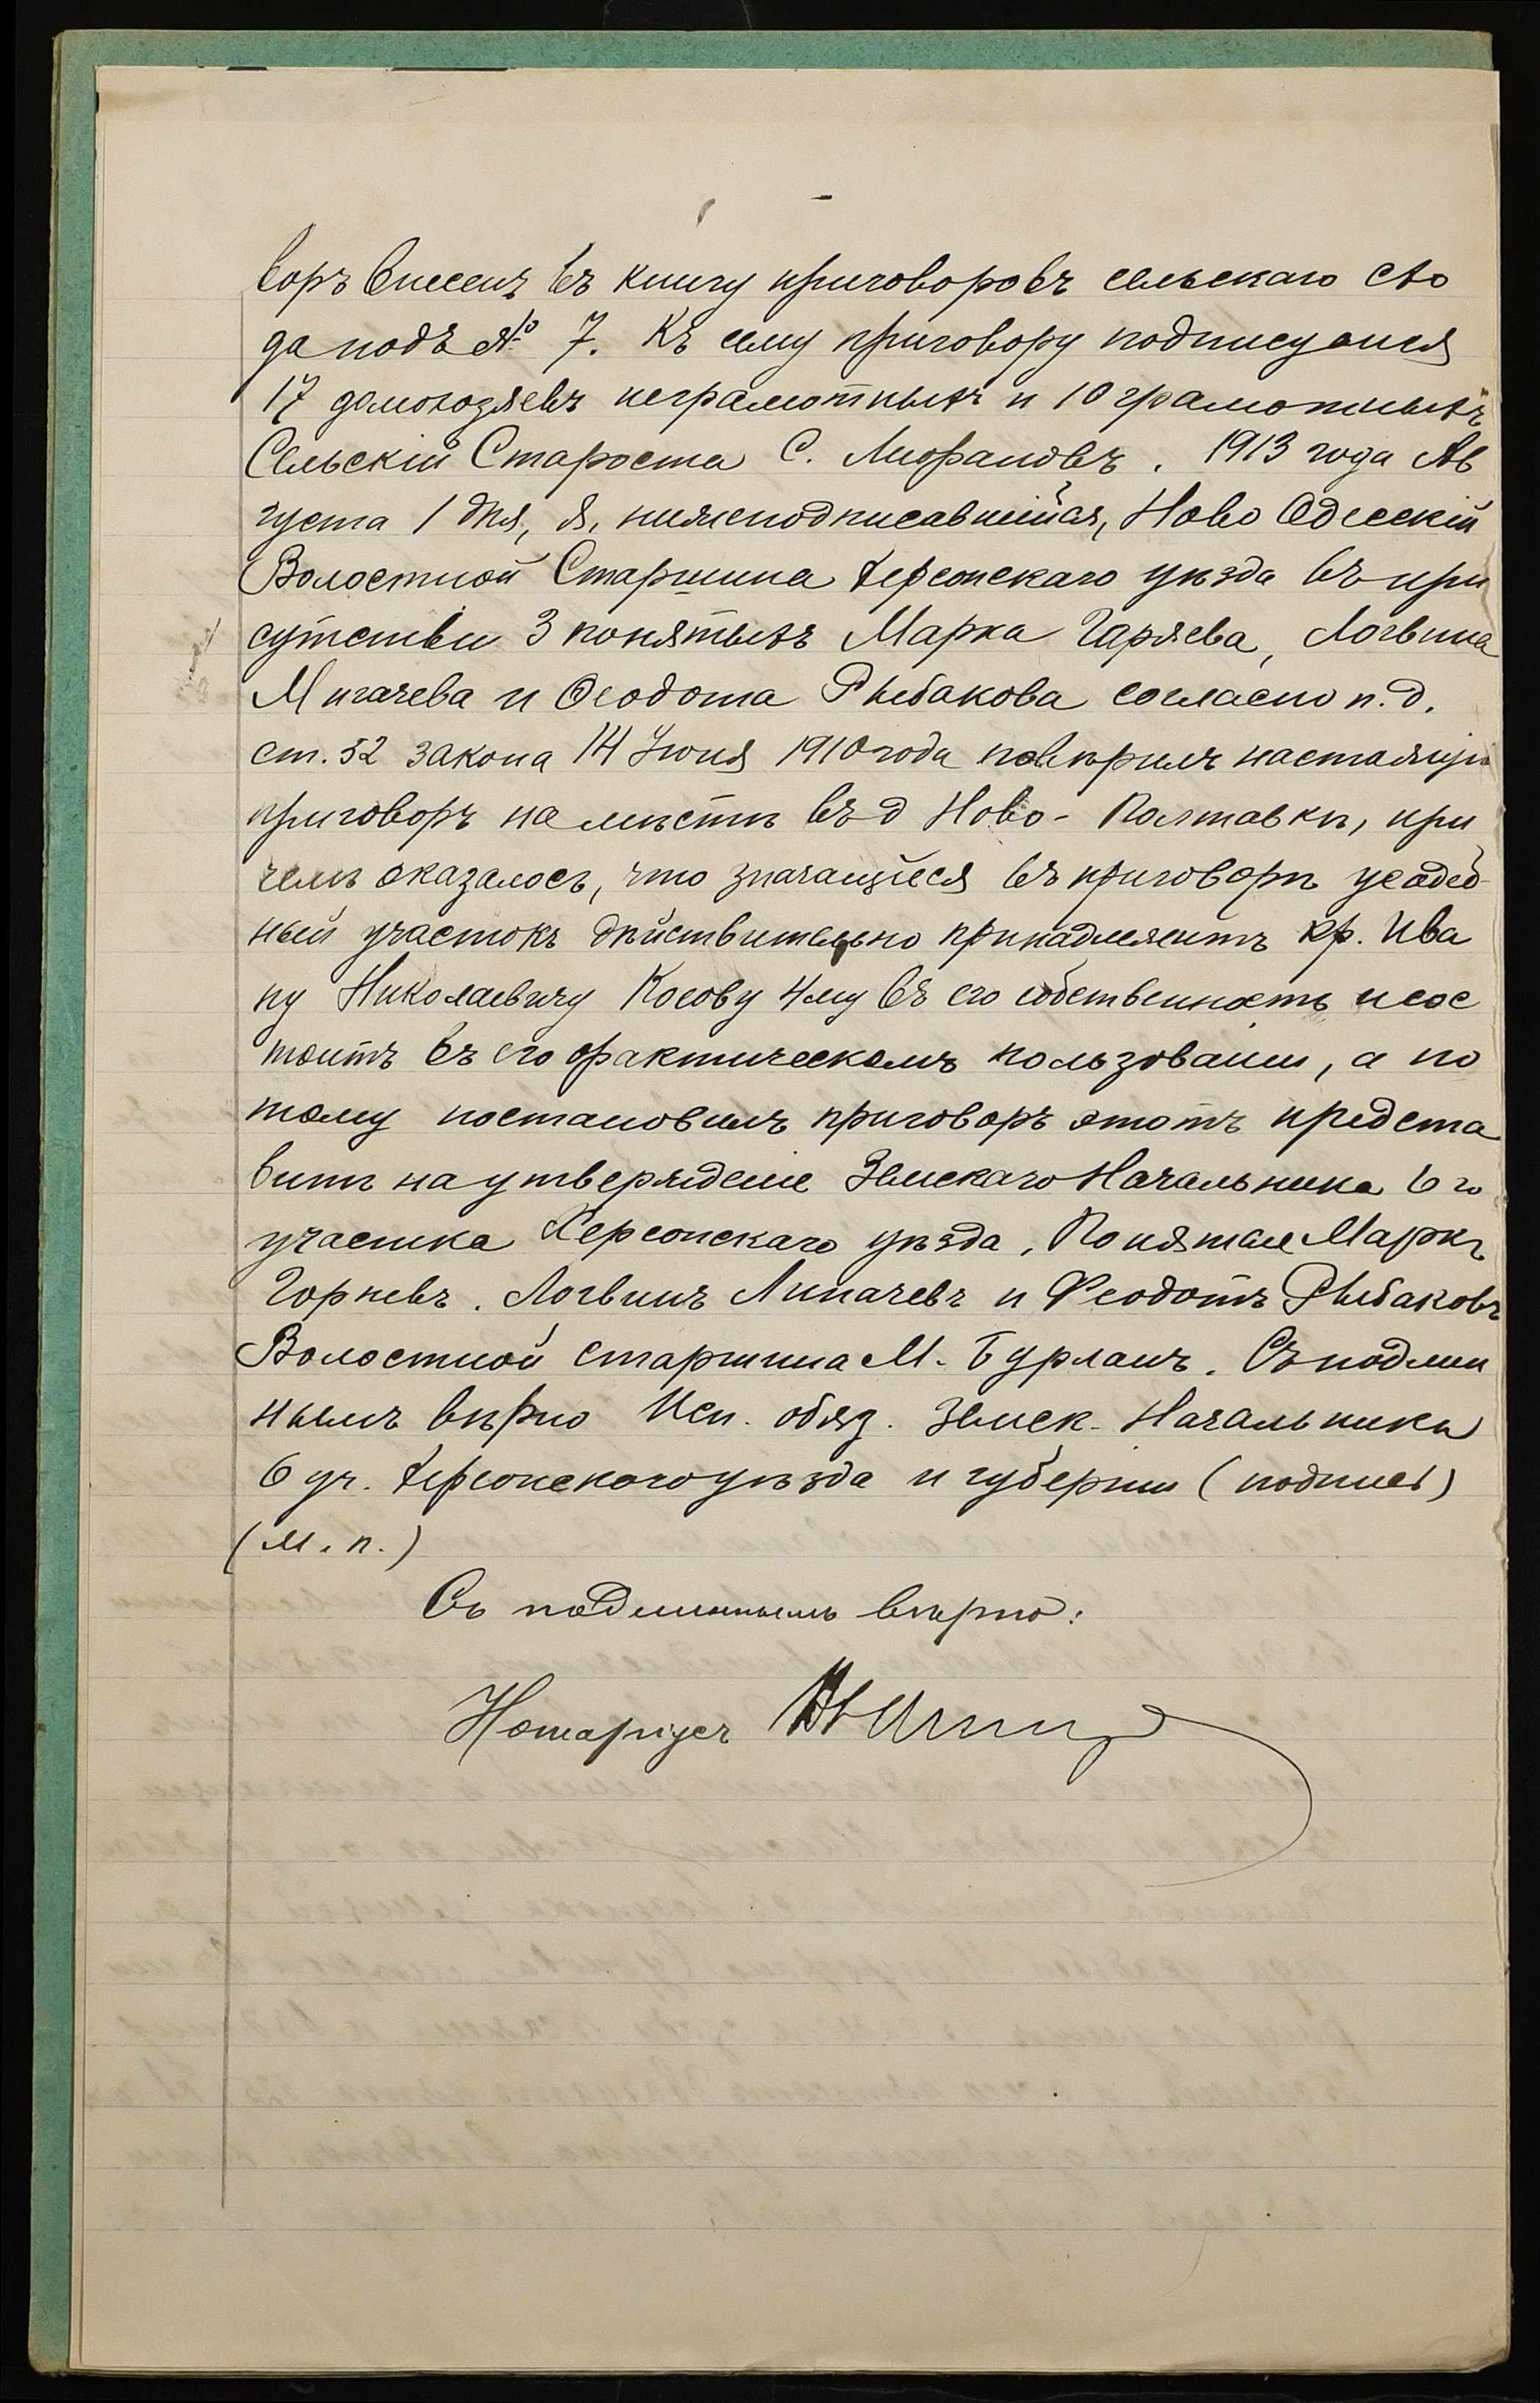 воръ внесенъ въ книгу приговоровъ сельскаго схо
да подъ № 7. Къ сему приговору подписуемся
17 домохозяевъ неграмотныхъ и 10 грамотныхъ
Сельскій Староста С. . 1913 года Ав
густа 1 дня, я, нижеподписавшійся, Ново Одесскій
Волостной Старшина Херсонскаго уѣзда въ при
сутствіи 3 понятыхъ Марка Горяева, Логвина
Мигачева и Ѳеодота Рыбакова согласно п. д.
ст. 52 закона 14 Іюня 1910 года повѣрилъ настоящій
приговоръ на мѣстѣ въ д Ново-Полтавкѣ, при
чемъ оказалось, что значащіеся въ приговорѣ усадеб-
ный участокъ дѣйствительно принадлежитъ кр. Ива
ну Николаевичу Косову 4му въ его собственность и сос
тоитъ въ его фактическомъ пользованіи, а по
тому постановилъ приговоръ этотъ предста
вить на утвержденіе Земскаго Начальника 6 го
участка Херсонскаго уѣзда, Понятые Маркъ
Горневъ. Логвинъ Липачевъ и Феодотъ Рыбаковъ
Волостной старшина М. Бурланъ. Съ подлин
нымъ вѣрно Исп. обяз. Земск. Начальника
6 уч. Херсонскаго уѣзда и губерніи (подпись)
(М. п.)
Съ подлиннымъ вѣрно:
Нотаріусъ